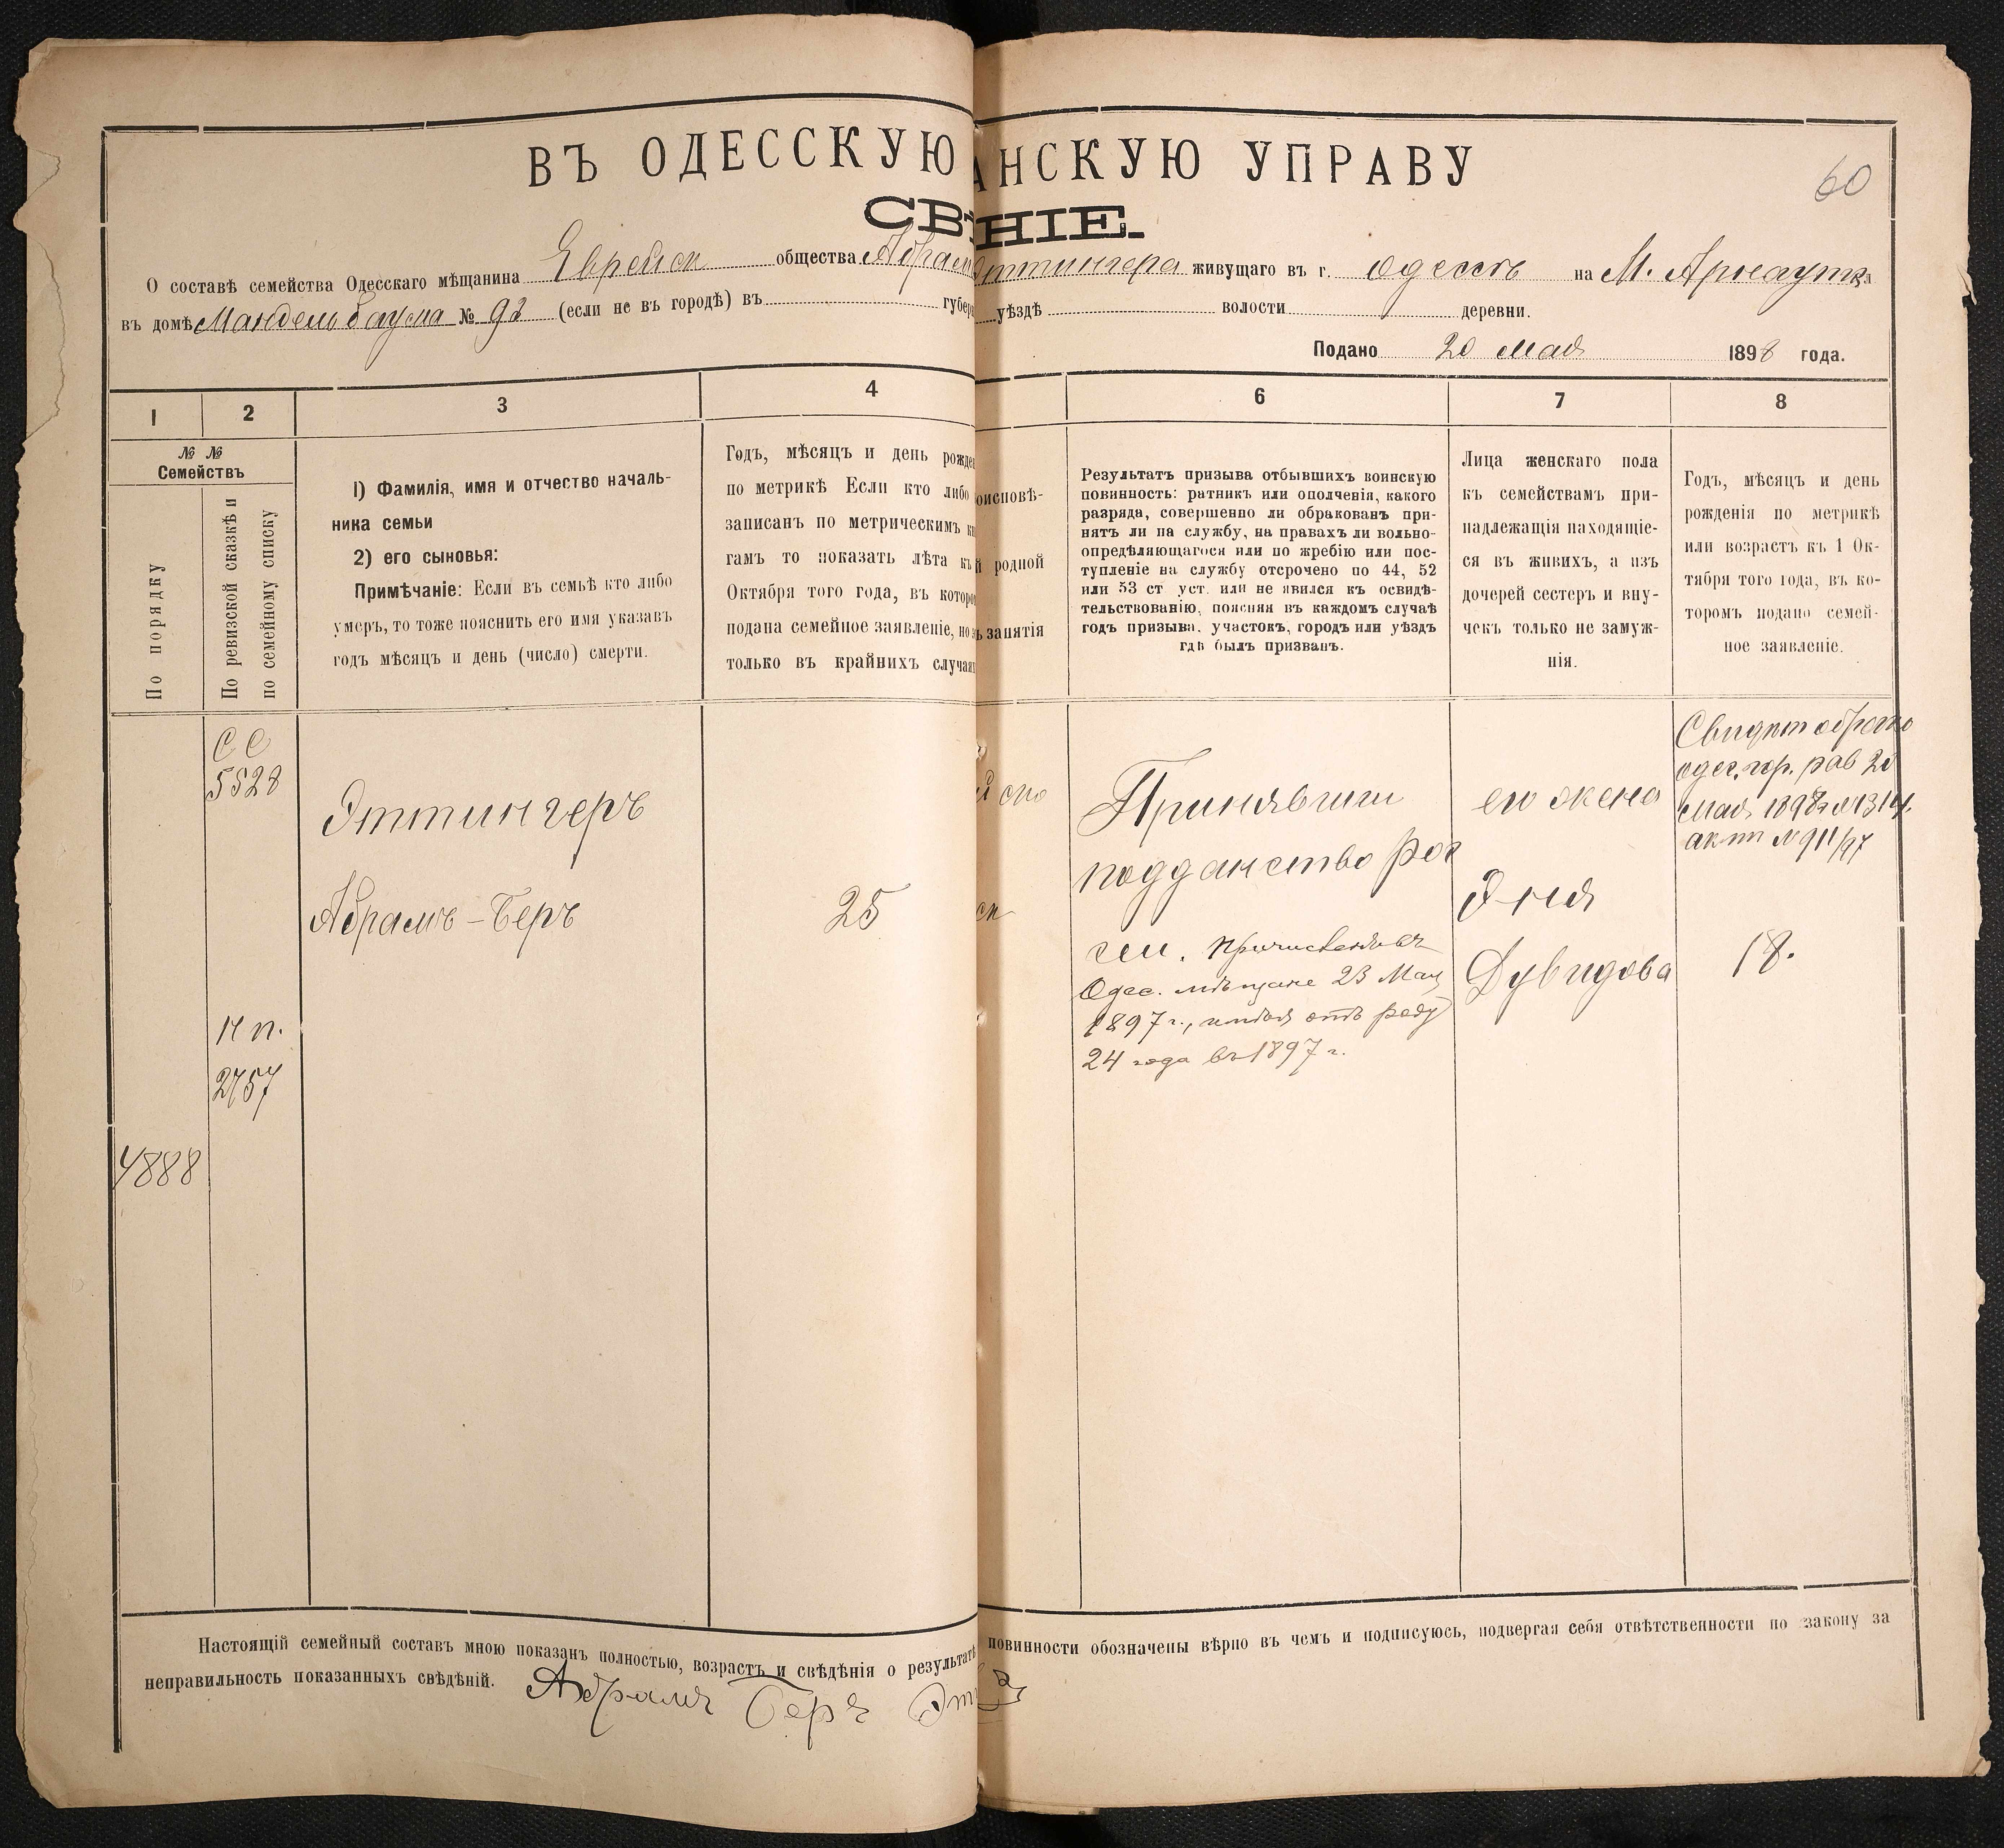 ВЪ ОДЕССКУЮ
АНСКУЮ УПРАВУ
60
СВѢ
НІЕ.
О составѣ семейства Одесскаго мѣщанина Еврейск общества Абрам
Эттингера живущаго въ г. Одессѣ на М. Арнаутск
въ домѣ Мандельбаума № 92 (если не въ городѣ) въ губер
уѣздѣ волости деревни.
Подано 20 Мая 1898 года.
1 2 3 4
6 7 8
№ №
Семействъ
По порядку
По ревизской сказкѣ и
по семейному списку
1) Фамилія, имя и отчество началь-
ника семьи
2) его сыновья:
Примѣчаніе: Если въ семьѣ кто либо
умеръ, то тоже пояснить его имя указавъ
годъ мѣсяцъ и день (число) смерти.
Годъ, мѣсяцъ и день рожде
по метрикѣ Если кто либо
записанъ по метрическимъ кн
гамъ то показать лѣта къ
Октября того года, въ которо
подана семейное заявленіе, но
только въ крайнихъ случая
оисповѣ-
й родной
ъ занятія
Результатъ призыва отбывшихъ воинскую
повинность: ратникъ или ополченія, какого
разряда, совершенно ли обракованъ при-
нятъ ли на службу, на правахъ ли вольно-
опредѣляющагося или по жребію или пос-
тупленіе на службу отсрочено по 44, 52
или 53 ст уст. или не явился къ освидѣ-
тельствованію, поясняя въ каждомъ случаѣ
годъ призыва, участокъ, городъ или уѣздъ
гдѣ былъ призванъ.
Лица женскаго пола
къ семействамъ при-
надлежащія находящіе-
ся въ живихъ, а изъ
дочерей сестеръ и вну-
чекъ только не замуж-
нія.
Годъ, мѣсяцъ и день
рожденія по метрикѣ
или возрастъ къ 1 Ок-
тября того года, въ ко-
торомъ подано семей-
ное заявленіе.
СС
5528
Эттингеръ
Абрамъ-Беръ
25
Н п.
2757
4888
Принявши
подданство Рос
сіи. Причисленъ въ
Одес. мѣщане 23 Мая
1897 г., имѣя отъ роду
24 года въ 1897 г.
его жена
Эня
Дувидова
Свидѣт
одес. гор. рав 20
Мая 1898 г. № 1314.
акт № 911/97
18.
Настоящій семейный составъ мною показанъ полностью, возрастъ и свѣдѣнія о результатѣ
повинности обозначены вѣрно въ чемъ и подписуюсь, подвергая себя отвѣтственности по закону за
неправильность показанныхъ свѣдѣній.
Абрамъ Беръ Эт